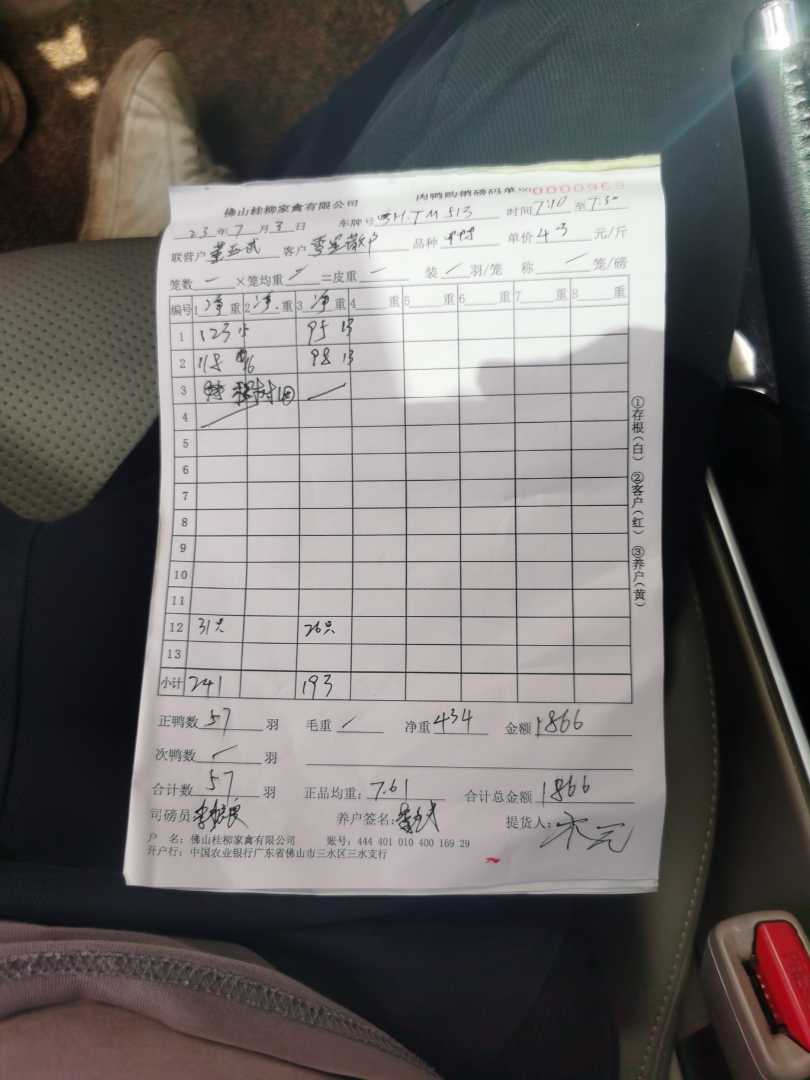 佛山桂柳家禽有限公司 肉鸭购销磅码单 №0000963
23年7月3日 车牌号 M.TM513 时间7:10至7:30
联营户 董五武 客户 散户 品种 单价 4.3 元/斤
笼数 — ×笼均重 =皮重 — 装 / 羽/笼 称 — 笼/磅
编号 1 净 重 2 净 重 3 净 重 4 重 5 重 6 重 7 重 8 重
1 123 15 95 13
2 118 16 98 13
3
4
5
6
7
8
9
10
11
12 31只 26只
13
小计 241 193
正鸭数 57 羽 毛重 / 净重 434 金额 1866
次鸭数 / 羽
合计数 57 羽 正品均重: 7.61 合计总金额 1866
司磅员 养户签名: 董五武 提货人:
户 名: 佛山桂柳家禽有限公司 账号: 444 401 010 400 169 29
开户行: 中国农业银行广东省佛山市三水区三水支行
①存根(白) ②客户(红) ③养户(黄)